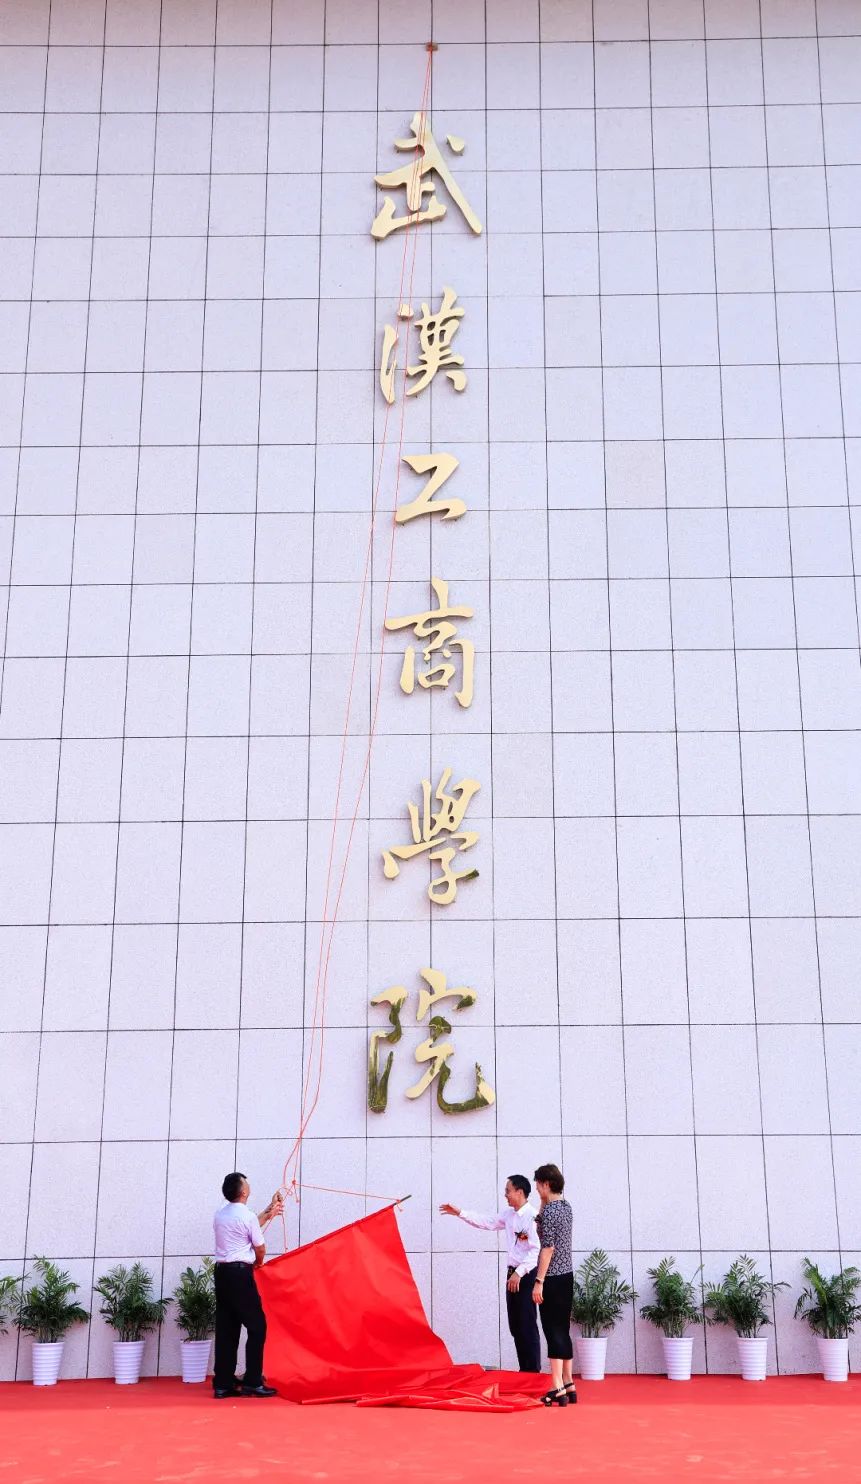 武漢工商學院